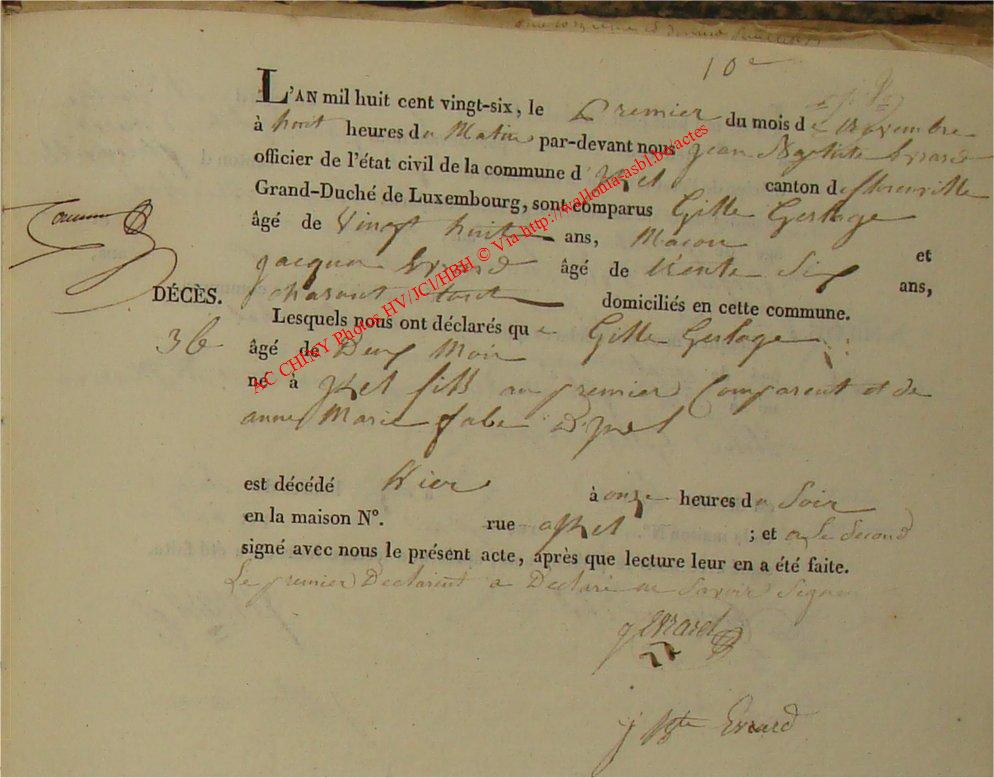 10e
L'AN mil huit cent vingt-six, le Premier du mois de novembre
à huit heures du Matin par-devant nous jean Baptiste Evrard
officier de l'état civil de la commune d'izel canton de florenville
Grand-Duché de Luxembourg, sont comparus Gille Gerlage
âgé de Vingt huit ans, Macon et
jacque Evrard âgé de trente Six ans,
domiciliés en cette commune.
DÉCÈS. Lesquels nous ont déclarés que Gille Gerlage
36 âgé de Deux Mois
né à izel fils au premier Comparent et de
anne Marie fabe D'izel
est décédé hier à onze heures du Soir
en la maison N°. rue a izel ; et a le Second
signé avec nous le présent acte, après que lecture leur en a été faite.
Le premier Declarent a Declaré ne Savoir Signer
j Evrard
j Bte Evrard
AC CHINY Photos HV/JCl/HBH © Via http://wallonia-asbl.be/actes